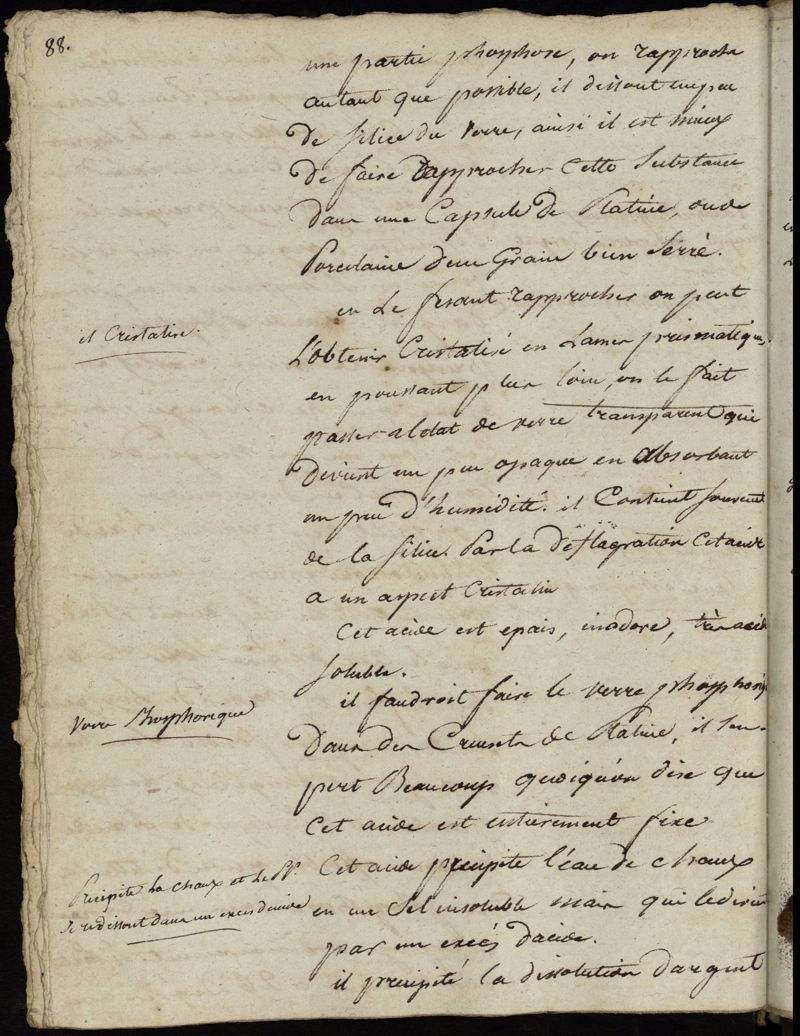 88.
une partie phosphore, on rapproche
autant que possible, il dissout un peu
de silice du verre, ainsi il est mieux
de faire rapprocher cette substance
dans une Capsule de Platine, ou de
Porcelaine d'un Grain bien serré.
en le fesant rapprocher on peut
il Cristalise.
L'obtenir Cristalisé en Lames prismatiques
en poussant plus loin, on le fait
passer a letat de verre transparent qui
devient un peu opaque en absorbant
un peu d'humidité. il Contient souvent
de la silice. Par la déflagration Cet acide
a un aspect Cristalin
Cet acide est epais, inodore, très acide
soluble.
il faudroit faire le verre phosphoriq
Verre Phosphorique
Dans des Creusets de Platine, il s'en
pert Beaucoup quoiqu'on dise que
Cet acide est entierement fixe
Cet acide précipite l'eau de chaux
Précipite La chaux et Le PP.
en un Sel insoluble mais qui
se redissout dans un exces d'acide
par un excés d'acide.
il précipité la dissolution d'argent